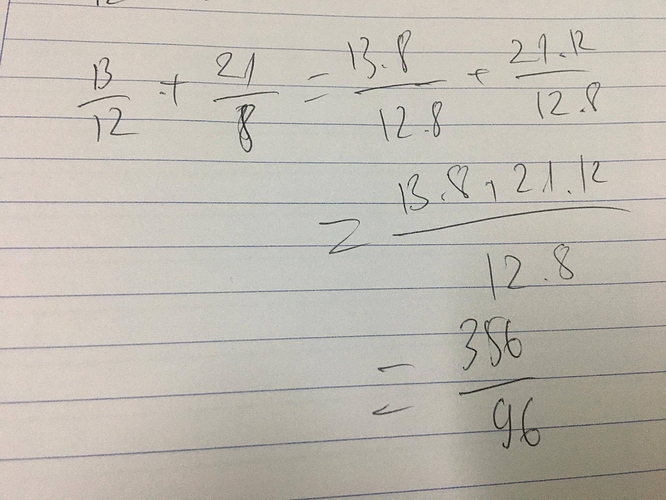 13/12 + 21/8 = 13.8/12.8 + 21.12/12.8
= 13.8+21.12/12.8
= 356/96